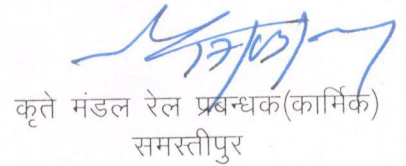 कृते मंडल रेल प्रबन्धक(कार्मिक)
समस्तीपुर